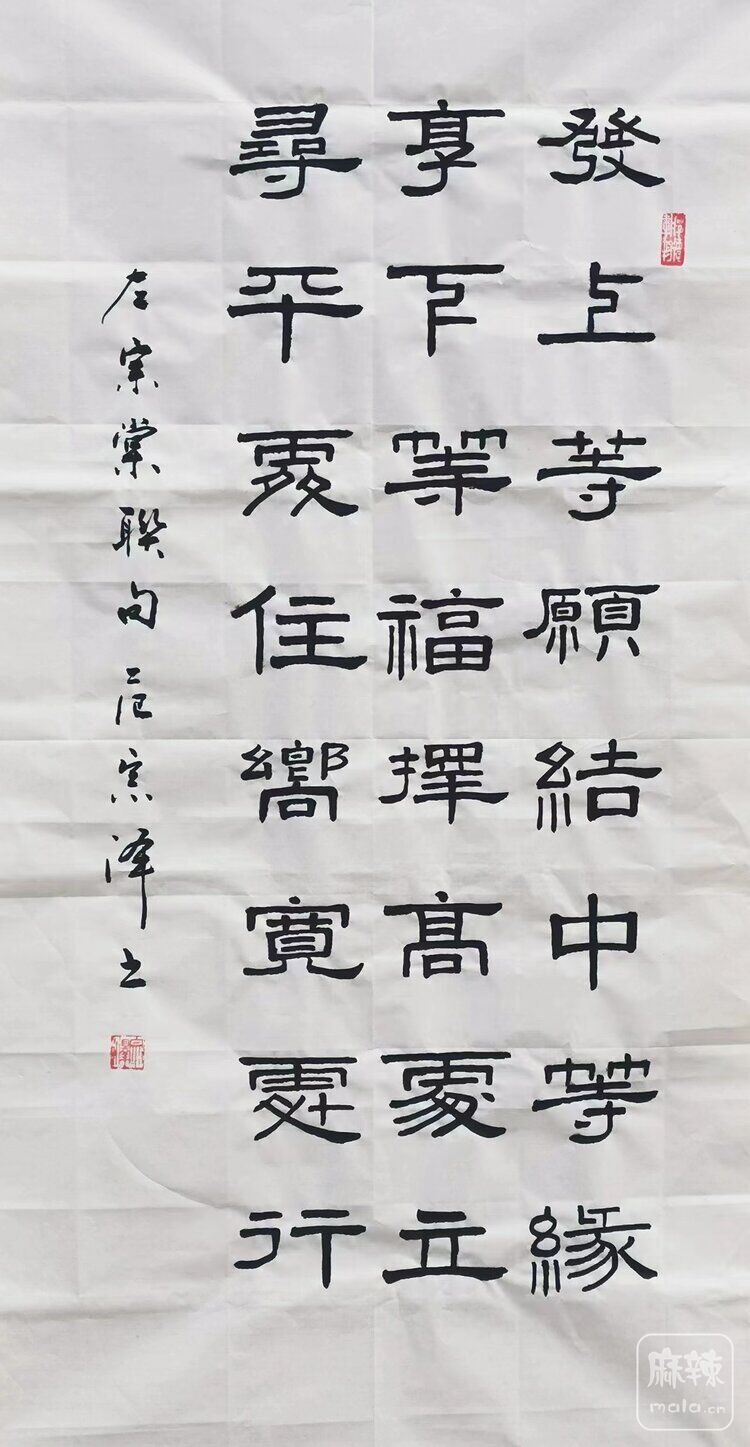 發上等願結中等緣
享下等福擇高處立
尋平處住嚮寬處行
左宗棠聯句 范宗澤书
麻辣
mala.cn